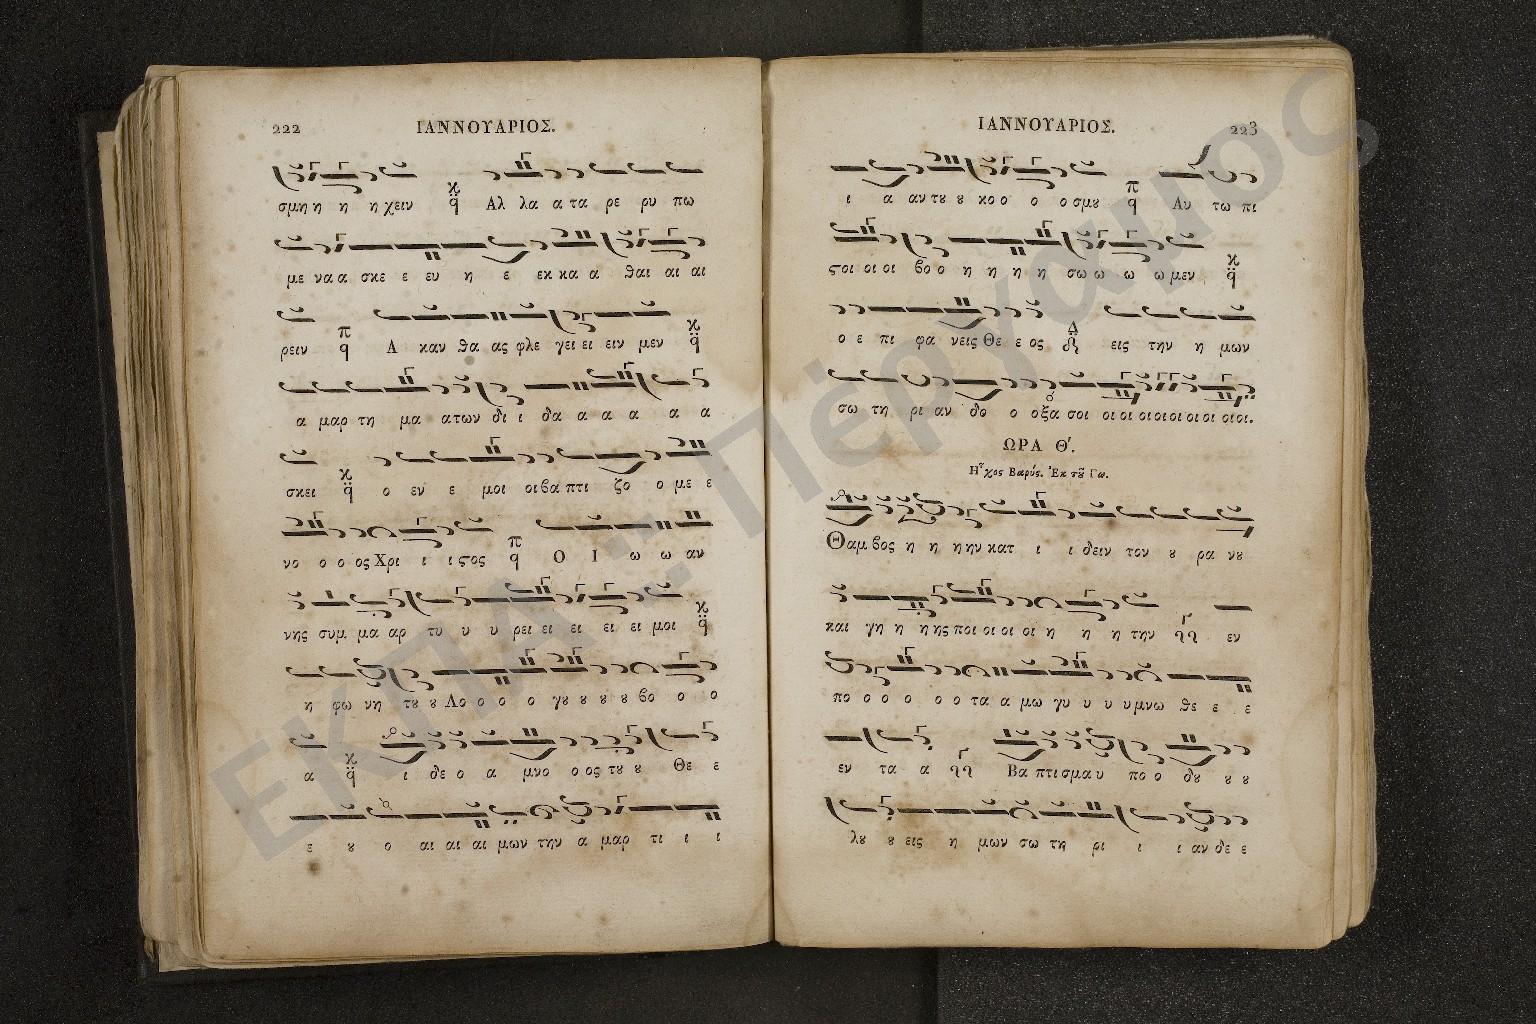 222 ΙΑΝΝΟΥΑΡΙΟΣ.
σμη η η η χειν Αλ λα α τα ρε ρυ πω
με να α σκε ε ευ η ε εκ κα α θαι αι αι
ρειν Α καν θα ας φλε γει ει ειν μεν
α μαρ τη μα ατων δι ι δα α α α α α
σκει ο εν ε μοι οι βα πτι ζο ο με ε
νο ο ο ος Χρι ι ι ϛος Ο Ι ω ω αν
νης συμ μα αρ τυ υ υ ρει ει ει ει ει μοι
η φω νη τȣ ȣ Λο ο ο ο γȣ ȣ ȣ ȣ βο ο ο
α ι δε ο α μνο ο ος τȣ ȣ Θε ε
ε ȣ ο αι αι αι μων την α μαρ τι ι ι
ΙΑΝΝΟΥΑΡΙΟΣ. 223
ι α αν τȣ ȣ κο ο ο ο σμȣ Αυ τω πι
ϛοι οι οι βο ο η η η η σω ω ω ω μεν
ο ε πι φα νεις Θε ε ος εις την η μων
σω τη ρι αν δο ο οξα σοι οι οι οι οι οι οι οι οι.
ΩΡΑ Θ΄.
Ἦχος Βαρύς. Ἐκ τȣ͂ Γω.
Θαμ βος η η η ην κατ ι ι δειν τον ȣ ρα νȣ
και γη η ης ποι οι οι οι η η η την εν
πο ο ο ο ο ο τα α μω γυ υ υ υμνω θε ε ε
εν τα α Βα πτι σμα υ πο ο δȣ ȣ ȣ
λȣ ȣ εις η μων σω τη ρι ι ι αν δε ε
ΕΚΠΑ :: Πέργαμος